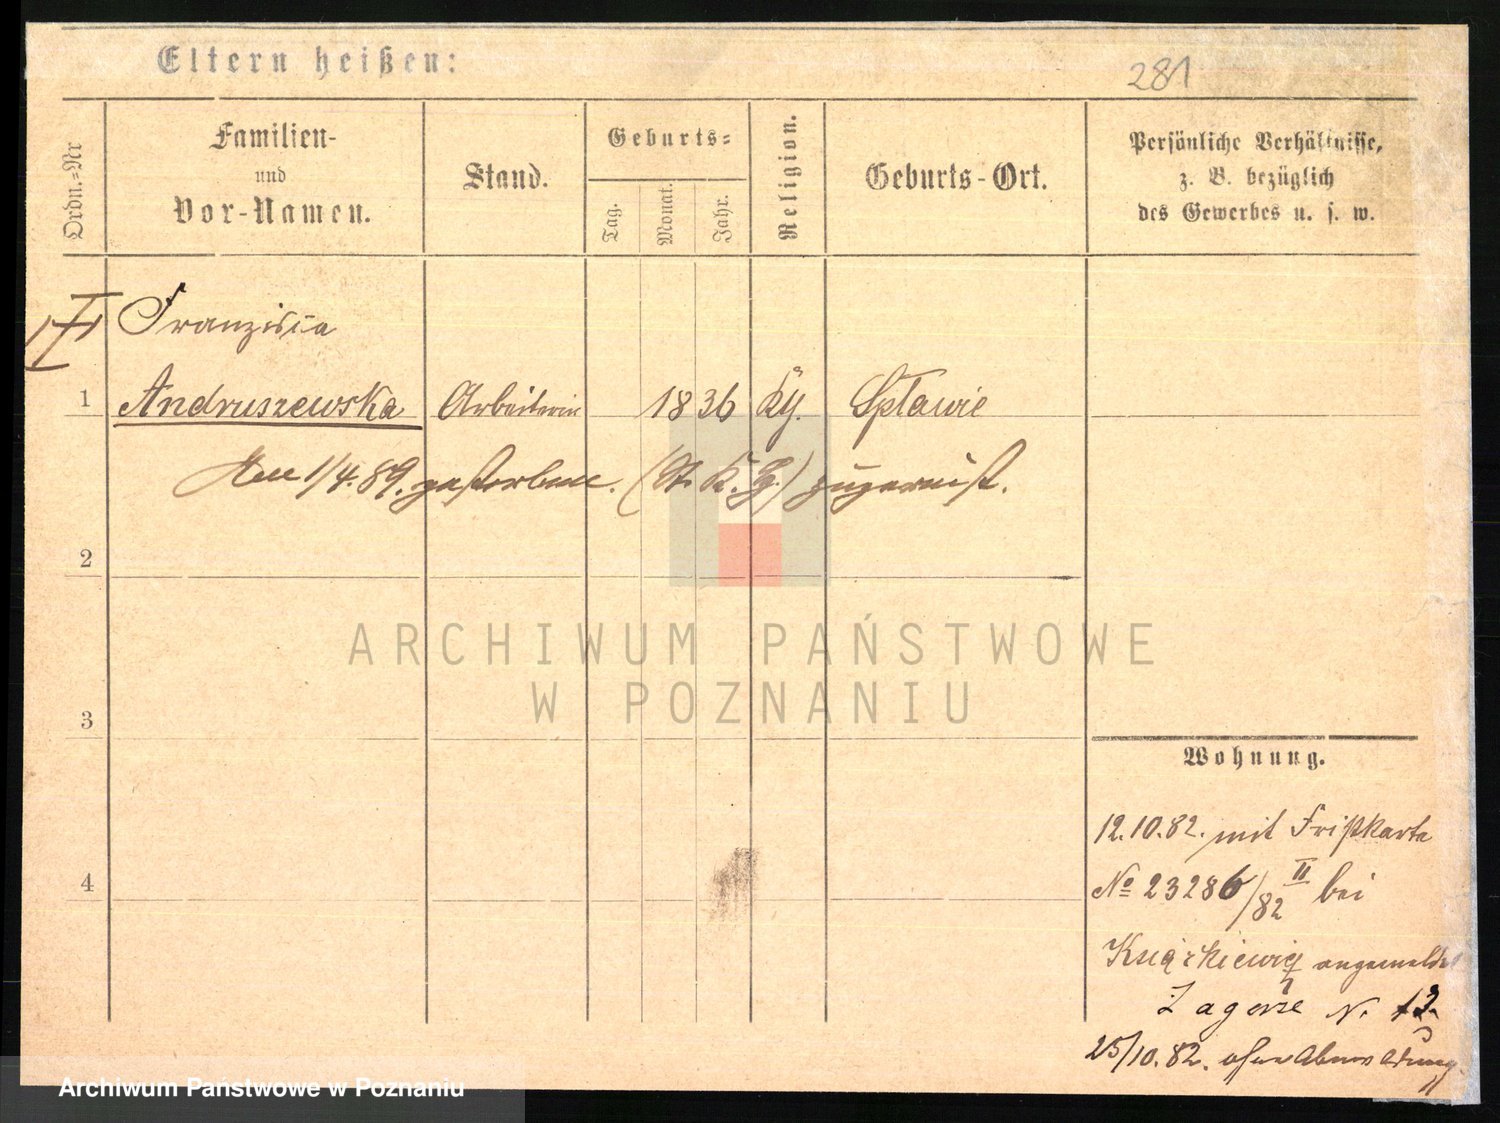 Eltern heißen:
281
Ordn.-Nr
Familien-
und
Vor-Namen.
Stand.
Geburts-
Tag.
Monat.
Jahr.
Religion.
Geburts-Ort.
Persönliche Verhältnisse,
z. B. bezüglich
des Gewerbes u. s. w.
Franziska
1 Andruszewska Arbeiterin 1836 Spławie
1/4. 89. gestorben. (St. K. G.) zugereist.
2
ARCHIWUM PAŃSTWOWE
W POZNANIU
3
Wohnung.
12.10.82. mit Frißkarte
4
No 23286/82 II bei
Książkiewicz angemeldet
Zagorze N. 13.
25/10.82. ohne Abmeldung.
Archiwum Państwowe w Poznaniu